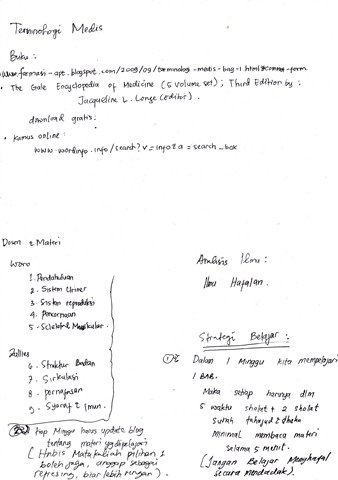 Terminologi Medis
Buku :
www.farmasi-apt.blogspot.com/2009/09/terminolog-medis-bag-1.html#comm-form
• The Gale Encyclopedia of Medicine (5 volume set); Third Edition by :
Jacqueline L. Longe (editor).
download gratis :
• Kamus online :
www.wordinfo.info/search?v=info&a=search_box
Dosen & Materi
Woro
1. Pendahuluan
2. Sistem Uriner
3. Sistem reproduksi
4. Pencernaan
5. Skeletal Muskular
Zullies
6. Struktur Badan
7. Sirkulasi
8. Pernafasan
9. Syaraf & Imun.
2. Tiap Minggu harus update blog
tentang materi yg dipelajari
(Hnbis Matakuliah pilihan 1
boleh juga, anggap sebagai
refresing, biar lebih ringan).
Analisis Ilmu :
Ilmu Hafalan.
Strategi Belajar :
1. Dalam 1 Minggu kita mempelajari
1 BAB.
Maka setiap harinya dlm
5 waktu sholat + 2 sholat
Sunah tahajud & dhuha
Minimal membaca materi
selama 5 menit.
(Jangan Belajar Menghafal
secara mendadak).